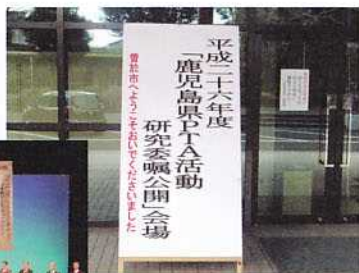 平成二十六年度
「鹿児島県PTA活動
研究委嘱公開」会場
曽於市へようこそおいでくださいました